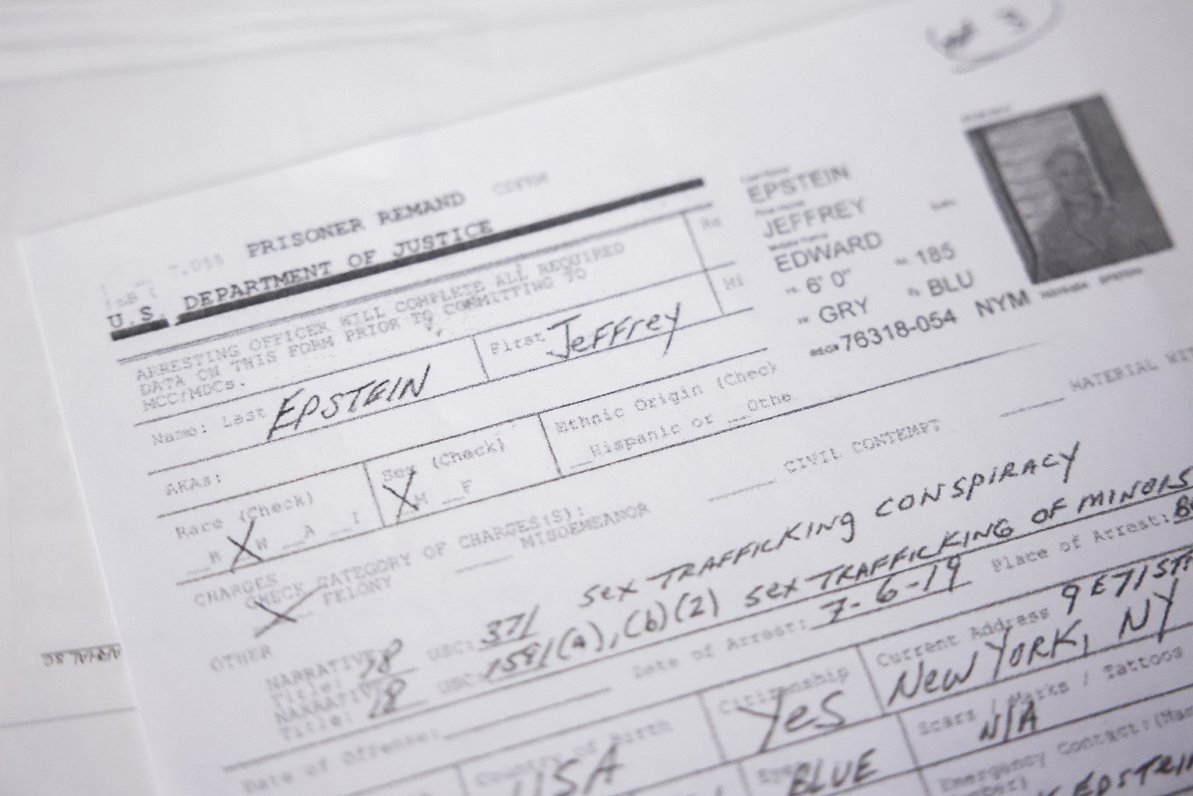 PRISONER REMAND
U.S. DEPARTMENT OF JUSTICE
ARRESTING OFFICER WILL COMPLETE ALL REQUIRED
DATA ON THIS FORM PRIOR TO COMMITTING TO
MCC/MDCs.
Name: Last EPSTEIN First Jeffrey
MI
Last Name
EPSTEIN
JEFFREY
EDWARD
6' 0" 185
GRY BLU
REG# 76318-054 NYM
AKAs:
Race (Check)
X W A I
Sex (Check)
X M F
Ethnic Origin (Check
Hispanic or Othe
CHARGES
CHECK CATEGORY OF CHARGES(S):
X FELONY MISDEMEANOR CIVIL CONTEMPT MATERIAL WIT
OTHER
NARRATIVE
Title: 18 USC: 371 SEX TRAFFICKING CONSPIRACY
Title: 18 USC: 1591(a),(b)(2) SEX TRAFFICKING OF MINORS
Date of Offense: Date of Arrest: 7-6-19 Place of Arrest:
Country of Birth
USA
Citizenship
Yes
Current Address 9 E 71 ST
New York, NY
BLUE
Scars / Marks / Tattoos
N/A
Emergency Contact:
EPSTEIN